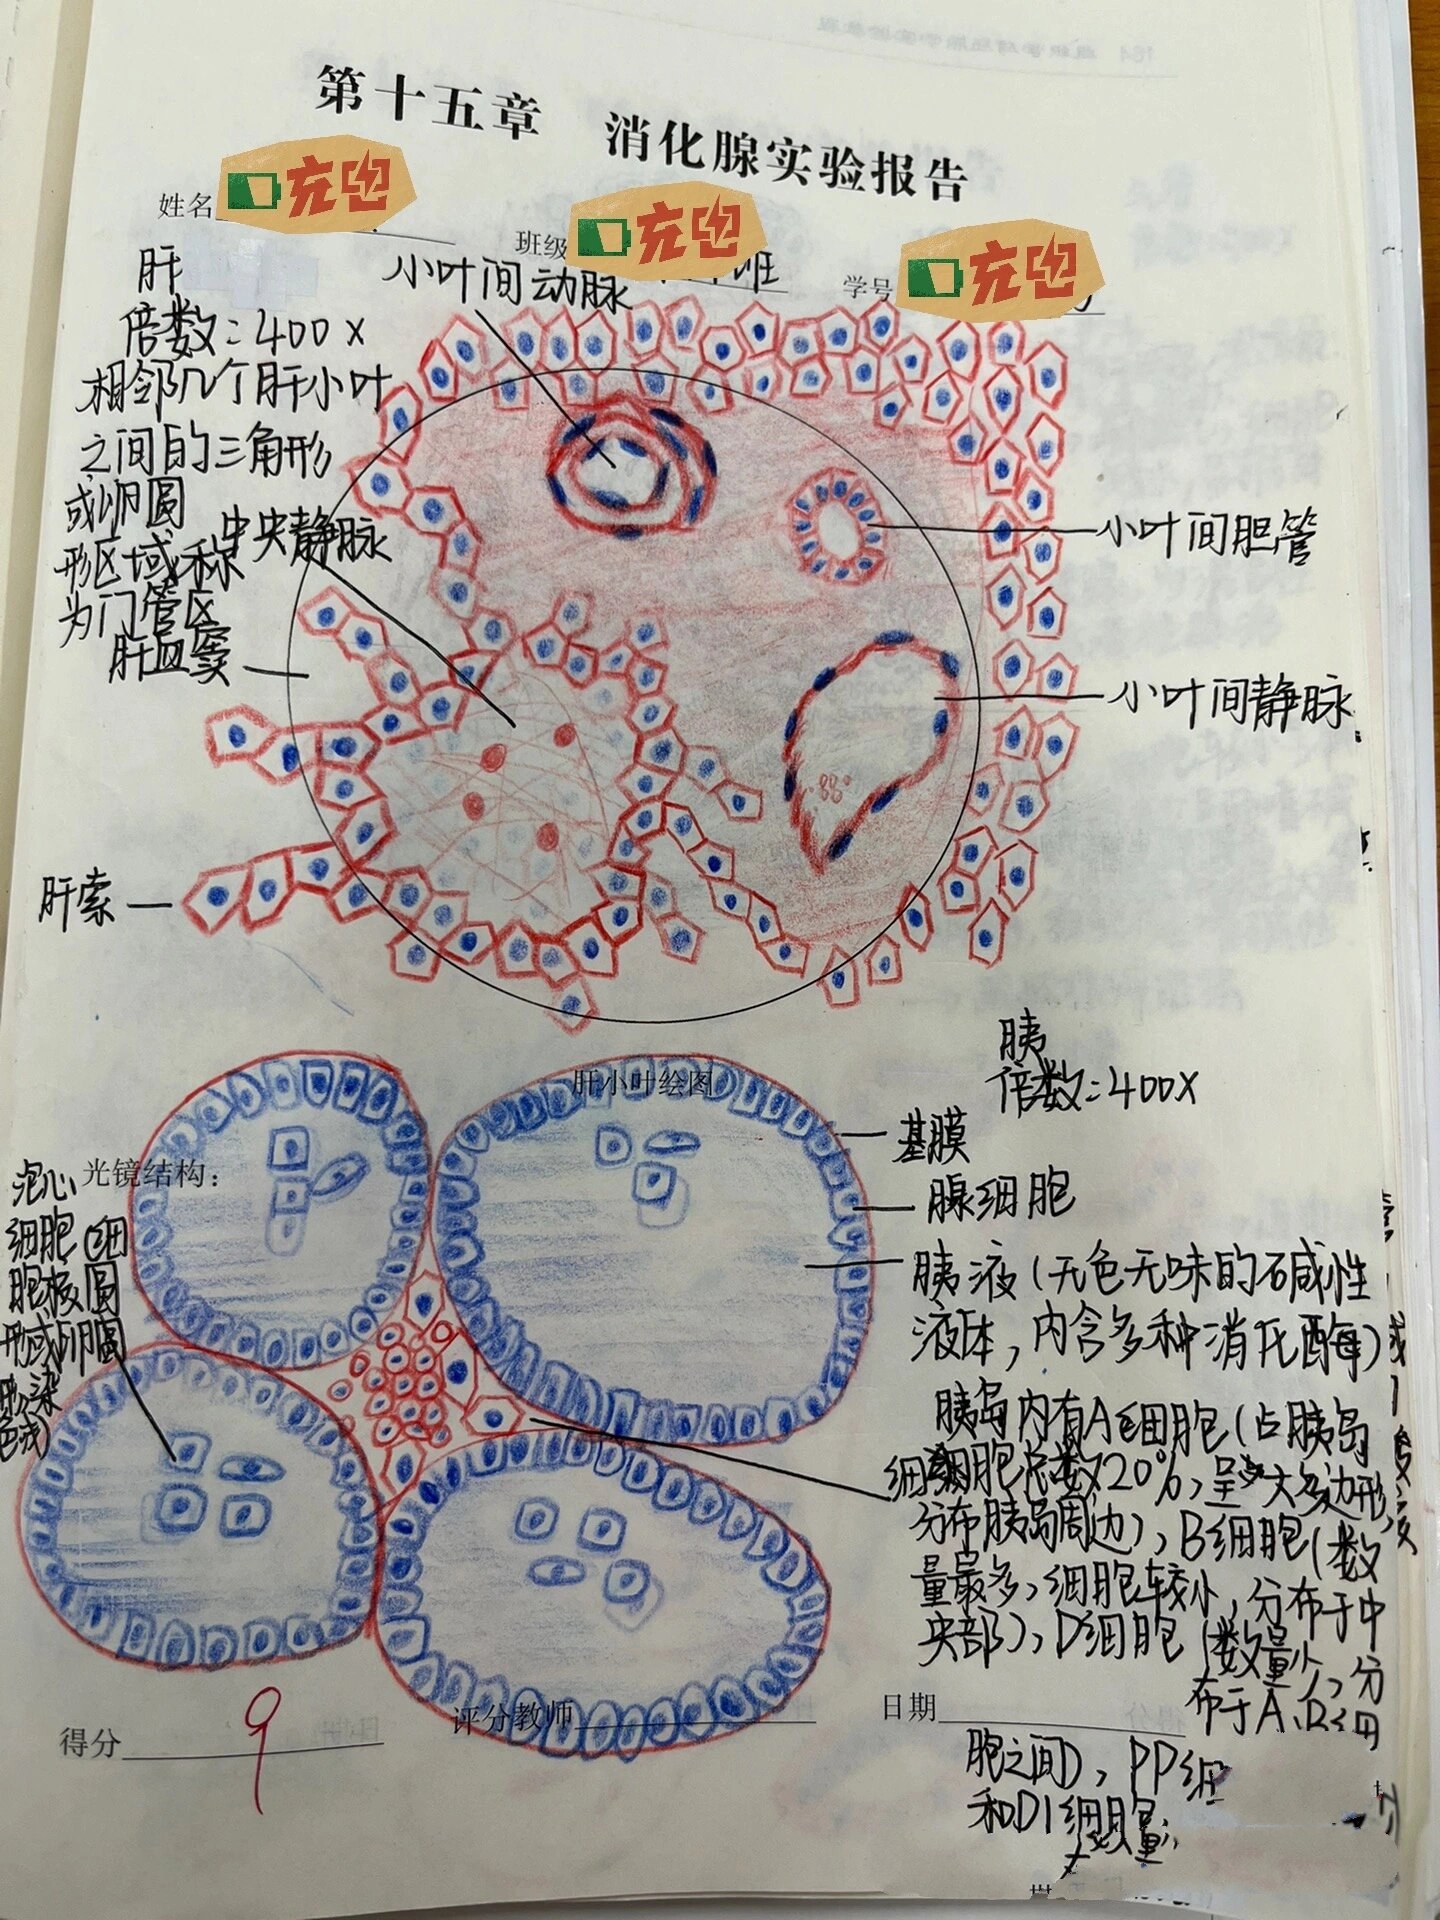 第十五章 消化腺实验报告
姓名 充电
班级 充电 班
学号 充电
肝
倍数:400×
相邻几个肝小叶
之间的三角形
或卵圆
形区域称
为门管区
小叶间动脉
中央静脉
肝血窦
肝索
小叶间胆管
小叶间静脉
肝小叶绘图
胰
倍数:400×
光镜结构:
泡心
细胞(细
胞核圆
形或卵圆
形,染
色浅)
基膜
腺细胞
胰液(无色无味的碱性
液体,内含多种消化酶)
胰岛内有A细胞(占胰岛
细胞总数20%,呈大多边形,
分布胰岛周边),B细胞(数
量最多,细胞较小,分布于中
央部),D细胞(数量少,分
布于A、B细
胞之间),PP细
和D1细胞
数量
得分 9
评分教师
日期